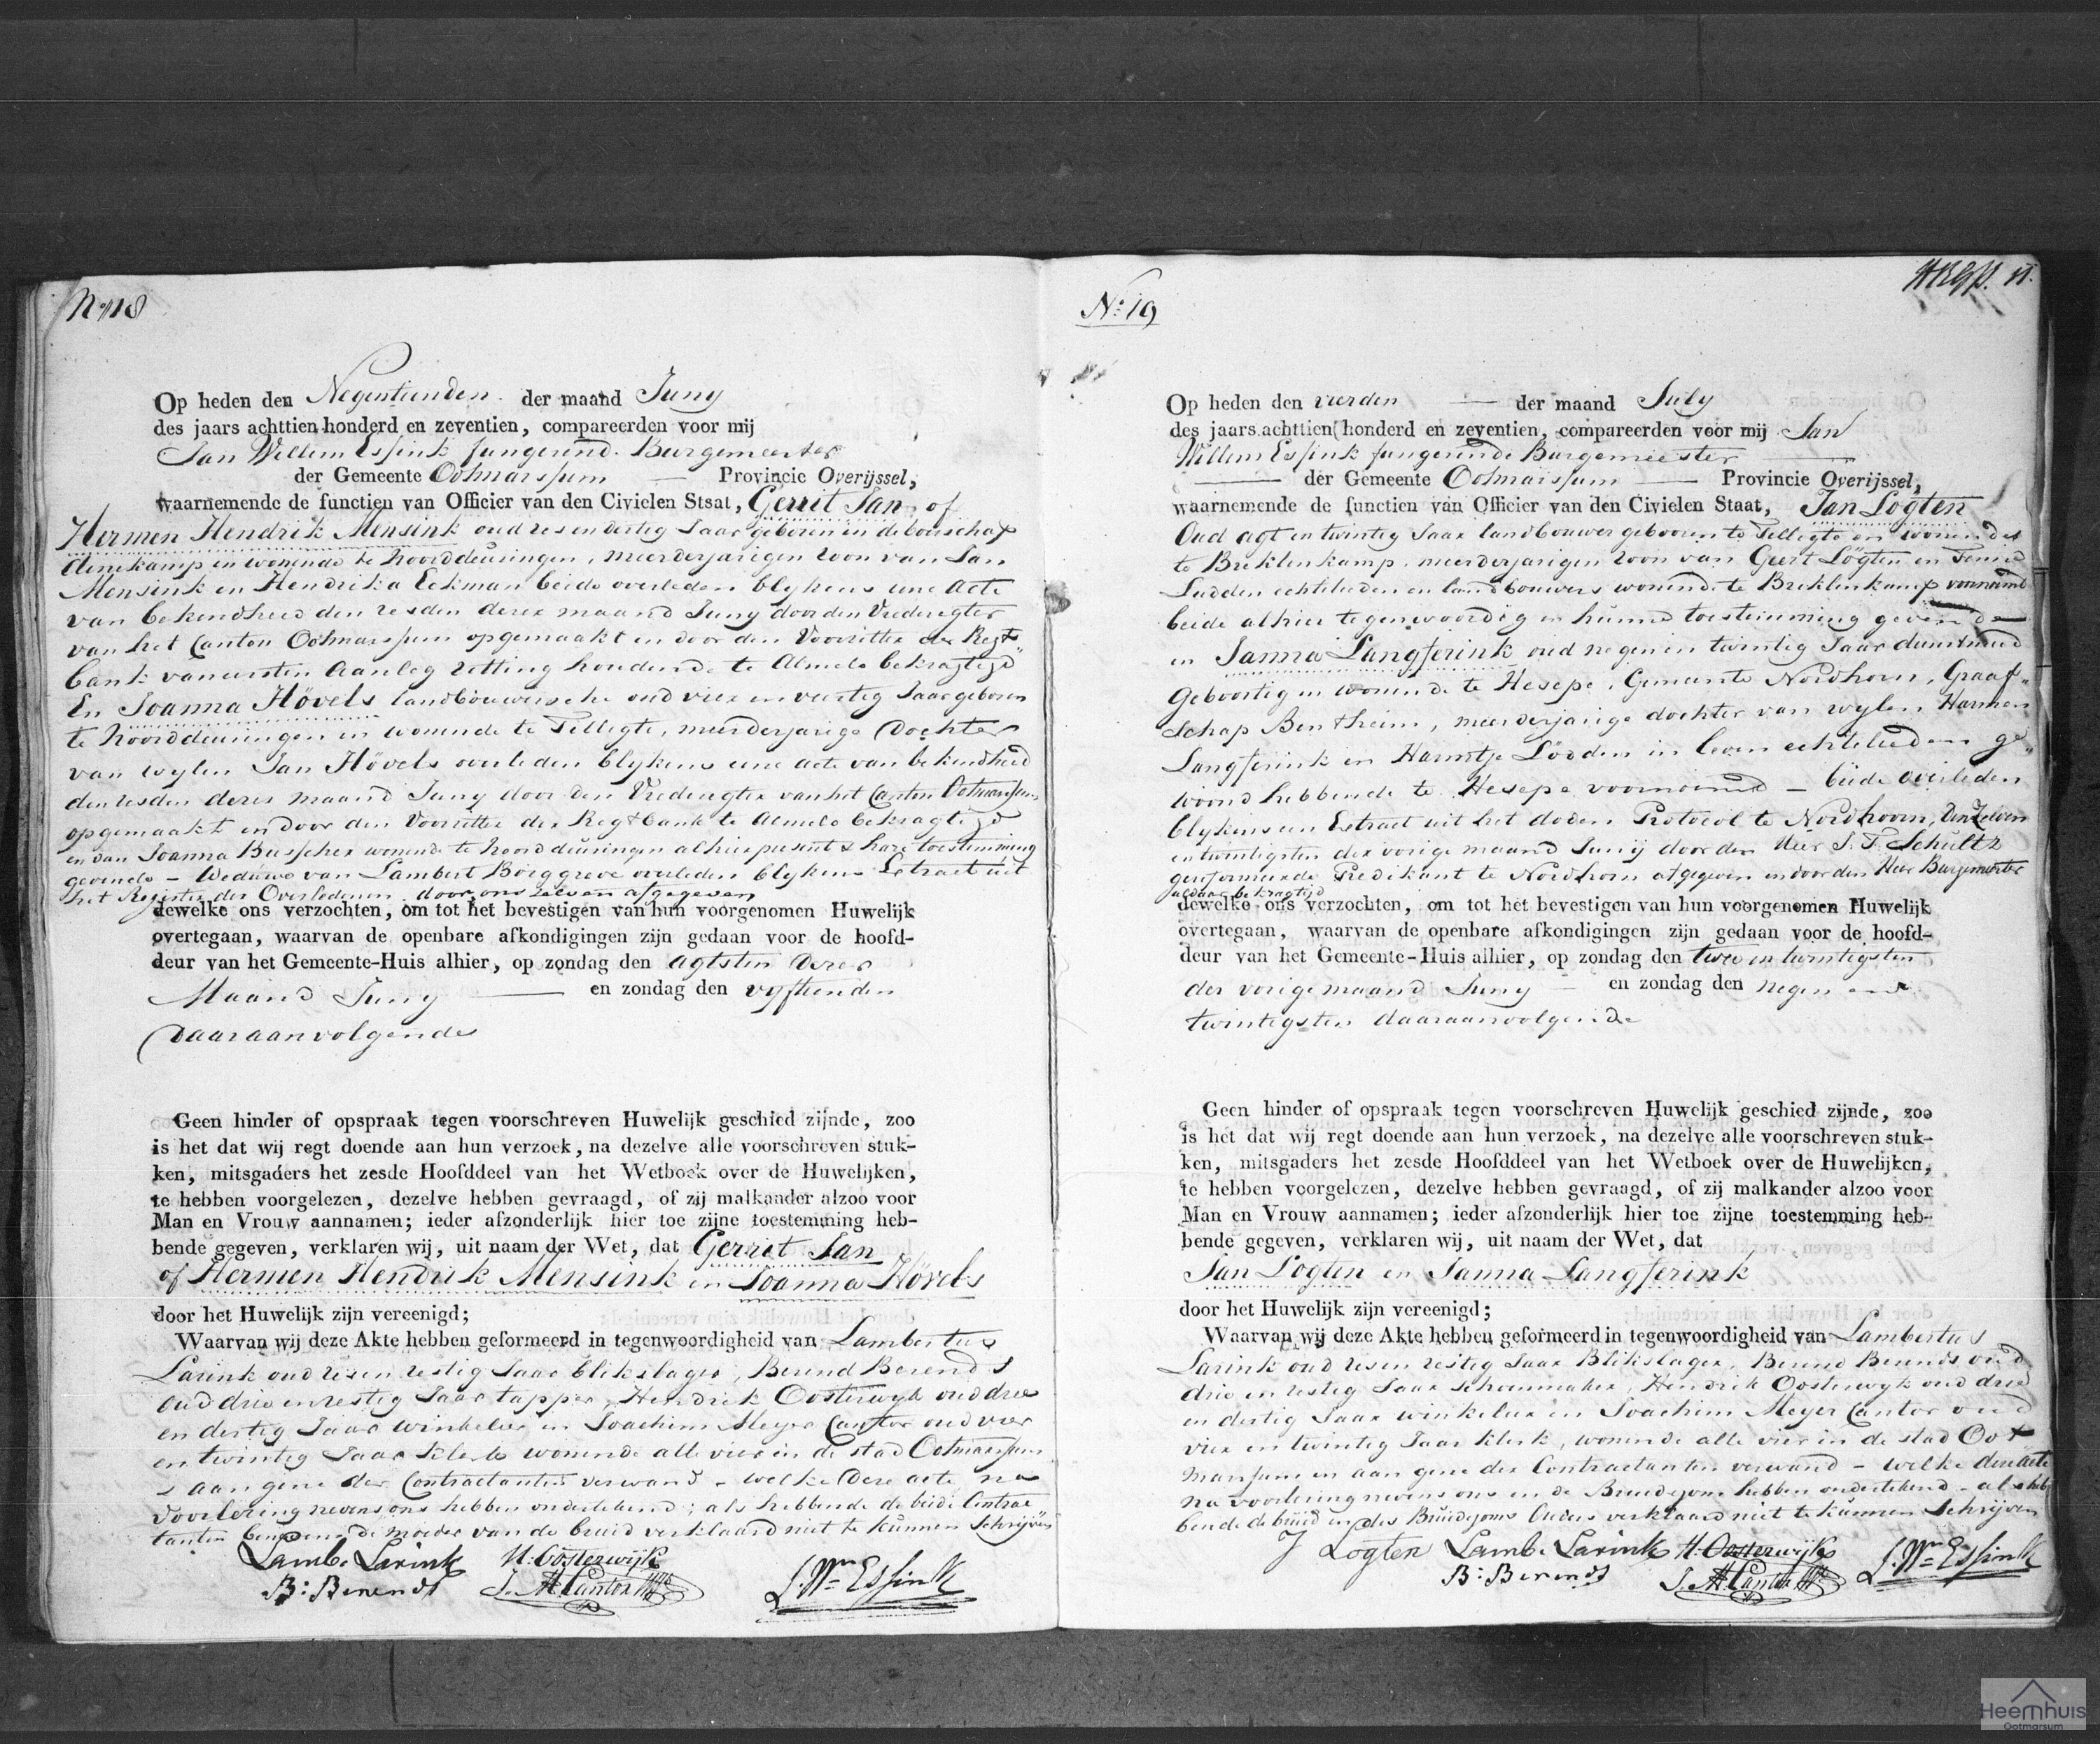 No 18
Op heden den Negentienden der maand Juny
des jaars achttien honderd en zeventien, compareerden voor mij
Jan Willem Essink fungerend Burgemeester
der Gemeente Ootmarssum — Provincie Overijssel,
waarnemende de functien van Officier van den Civielen Staat, Gerrit Jan of
Hermen Hendrik Mensink oud zes en dertig Jaar geboren in de boerschap
Denekamp en wonende te Noorddeuringen, meerderjarigen zoon van Jan
Mensink en Hendrika Eekman beide overleden blykens eene Acte
van bekendheid den zesden dezer maand Juny door den Vrederegter
van het Canton Ootmarssum opgemaakt en door den Voorzitter der Regt"
bank van eersten Aanleg zitting houdende te Almelo bekragtigd
En Joanna Hövels landbouwersche oud vier en veertig Jaar geboren
te Noorddeuringen en wonende te Tilligte, meerderjarige Dochter
van wylen Jan Hövels overleden blykens eene acte van bekendheid
den zesden dezer maand Juny door den Vrederegter van het Canton Ootmarssum
opgemaakt en door den Voorzitter der Regtbank te Almelo bekragtigd
en van Joanna Busscher wonende te Noorddeuringen alhier present & hare toestemming
gevende — Weduwe van Lambert Borggreve overleden blykens Extract uit
het Register der Overledenen door ons zelven afgegeven
dewelke ons verzochten, om tot het bevestigen van hun voorgenomen Huwelijk
overtegaan, waarvan de openbare afkondigingen zijn gedaan voor de hoofd-
deur van het Gemeente-Huis alhier, op zondag den agtsten dezer
Maand Juny — en zondag den vyftienden
daaraanvolgende
Geen hinder of opspraak tegen voorschreven Huwelijk geschied zijnde, zoo
is het dat wij regt doende aan hun verzoek, na dezelve alle voorschreven stuk-
ken, mitsgaders het zesde Hoofddeel van het Wetboek over de Huwelijken,
te hebben voorgelezen, dezelve hebben gevraagd, of zij malkander alzoo voor
Man en Vrouw aannamen; ieder afzonderlijk hier toe zijne toestemming heb-
bende gegeven, verklaren wij, uit naam der Wet, dat Gerrit Jan
of Hermen Hendrik Mensink en Joanna Hövels
door het Huwelijk zijn vereenigd;
Waarvan wij deze Akte hebben geformeerd in tegenwoordigheid van Lambertus
Larink oud zes en zestig Jaar blikslager, Berend Berends
oud drie en zestig Jaar tapper, Hendrik Oosterwyk oud drie
en dertig Jaar winkelier en Joachim Meyer Cantor oud vier
en twintig Jaar klerk wonende alle vier in de stad Ootmarssum
aan gene der Contractanten verwand — welke deze acte na
voorlezing nevens ons hebben ondertekend; als hebbende de beide Contrac
tanten benevens de moeder van de bruid verklaard niet te kunnen schrijven
Lamb. Larink H: Oosterwijk
B: Berends J. M. Cantor J. Wm Essink
No: 19
Op heden den vierden — der maand July
des jaars achttien honderd en zeventien, compareerden voor mij Jan
Willem Essink fungerende Burgemeester
der Gemeente Ootmarssum — Provincie Overijssel,
waarnemende de functien van Officier van den Civielen Staat, Jan Lögten
Oud agt en twintig Jaar landbouwer geboren te Tilligte en wonende
te Breklenkamp, meerderjarigen zoon van Geert Lögten en Fenne
Ludden echtelieden en landbouwers wonende te Breklenkamp voornamd
beide alhier tegenwoordig en hunne toestemming gevende —
en Janna Langferink oud negen en twintig Jaar dienstmeid
Geboortig en wonende te Hesepe, Gemeente Nordhorn, Graaf"
schap Bentheim, meerderjarige dochter van wylen Harmen
Langferink en Harmtje Lödden in leven echtelieden ge"
woond hebbende te Hesepe voornoemd — beide overleden
blykens een Extract uit het doden Protocol te Nordhorn, den zelven
en twintigsten der vorige maand Juny door den Heer J. F. Schultz
gereformeerde Predikant te Nordhorn afgegeven en door den Heer Burgemeester
aldaar bekragtigd
dewelke ons verzochten, om tot het bevestigen van hun voorgenomen Huwelijk
overtegaan, waarvan de openbare afkondigingen zijn gedaan voor de hoofd-
deur van het Gemeente-Huis alhier, op zondag den twee en twintigsten
der vorige maand Juny — en zondag den negen en
twintigsten daaraanvolgende
Geen hinder of opspraak tegen voorschreven Huwelijk geschied zijnde, zoo
is het dat wij regt doende aan hun verzoek, na dezelve alle voorschreven stuk-
ken, mitsgaders het zesde Hoofddeel van het Wetboek over de Huwelijken,
te hebben voorgelezen, dezelve hebben gevraagd, of zij malkander alzoo voor
Man en Vrouw aannamen; ieder afzonderlijk hier toe zijne toestemming heb-
bende gegeven, verklaren wij, uit naam der Wet, dat
Jan Lögten en Janna Langferink
door het Huwelijk zijn vereenigd;
Waarvan wij deze Akte hebben geformeerd in tegenwoordigheid van Lambertus
Larink oud zes en zestig Jaar Blikslager, Berend Berends oud
drie en zestig Jaar schoenmaker, Hendrik Oosterwyk oud drie
en dertig Jaar winkelier en Joachim Meyer Cantor oud
vier en twintig Jaar klerk, wonende alle vier in de stad Oot
marssum en aan gene der Contractanten verwand — welke deze acte
na voorlezing nevens ons en de Bruidegom hebben ondertekend — als heb
bende de bruid en des Bruidegoms Ouders verklaard niet te kunnen schrijven
J Logten Lamb. Larink H: Oosterwijk
B: Berends J. M. Cantor J. Wm Essink
Heemhuis
Ootmarsum